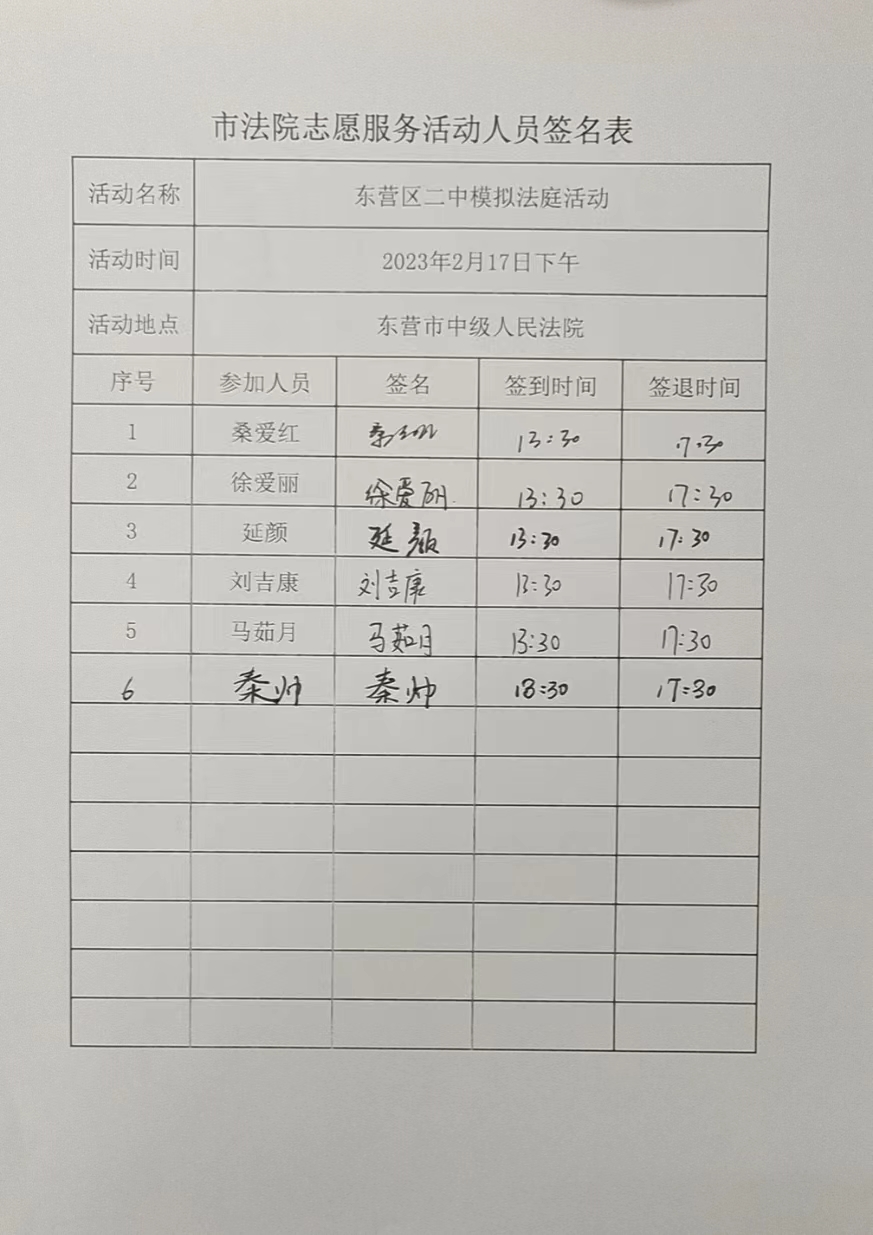 市法院志愿服务活动人员签名表
活动名称 东营区二中模拟法庭活动
活动时间 2023年2月17日下午
活动地点 东营市中级人民法院
序号 参加人员 签名 签到时间 签退时间
1 桑爱红 13:30 17:30
2 徐爱丽 徐爱丽 13:30 17:30
3 延颜 延颜 13:30 17:30
4 刘吉康 刘吉康 13:30 17:30
5 马茹月 马茹月 13:30 17:30
6 秦帅 秦帅 13:30 17:30